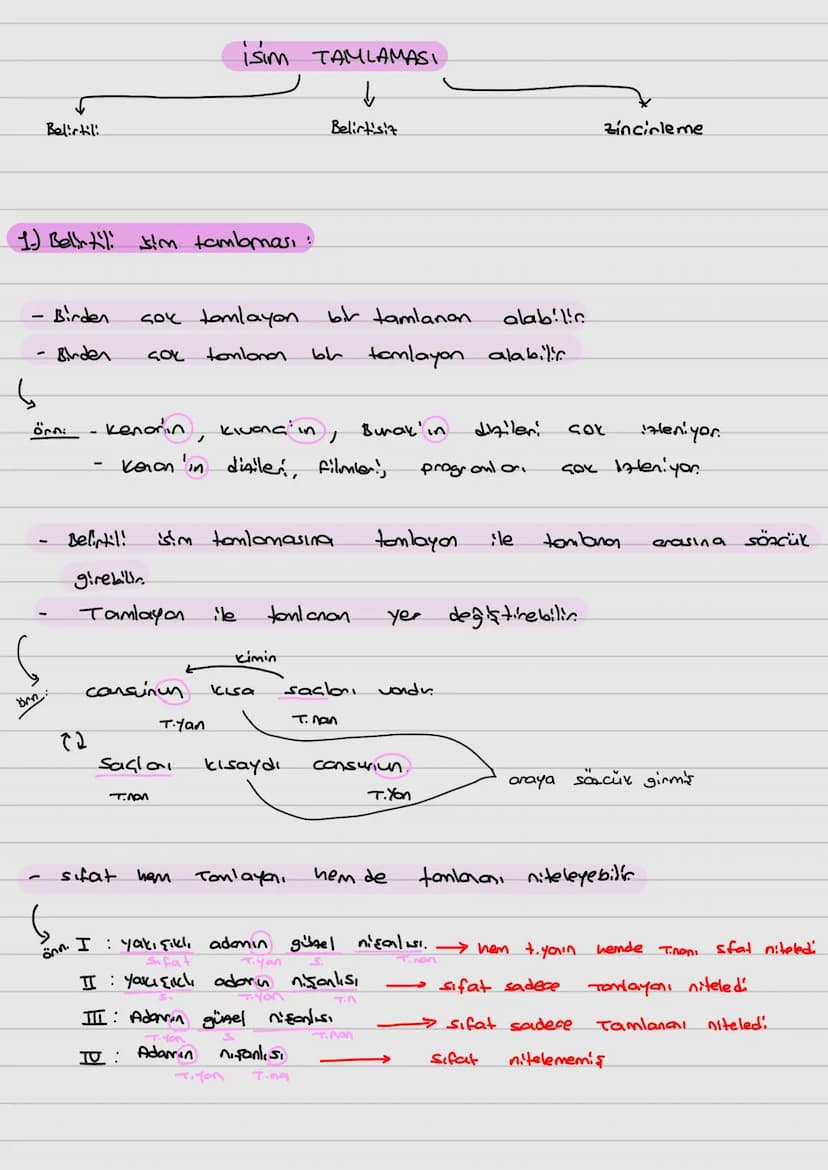 isim TAMLAMASI
Belirtili Belirtisiz zincirleme
1.) Belirtili isim tamlaması :
- Birden çok tamlayan bir tamlanan alabilir.
- Birden çok tamlanan bir tamlayan alabilir.
örn: - Kenan'ın, Kıvanç'ın, Burak'ın dizileri çok izleniyor.
- Kenan'ın dizileri, filmleri, programları çok izleniyor.
- Belirtili isim tamlamasına tamlayan ile tamlanan arasına sözcük
girebilir.
- Tamlayan ile tamlanan yer değiştirebilir.
kimin
örn: cansu'nun kısa saçları vardır.
T.yan T.nan
saçları kısaydı cansunun.
T.nan T.Yan
araya sözcük girmiş
- sıfat hem Tamlayanı hem de tamlananı niteleyebilir.
örn. I : yakışıklı adamın güzel nişanlısı. → hem t.yanın hemde T.nanı sıfat niteledi
sıfat T.yan s. T.nan
II : yakışıklı adamın nişanlısı → sıfat sadece Tamlayanı niteledi
s. T.yan T.n
III : Adamın güzel nişanlısı → sıfat sadece Tamlananı niteledi.
T.yan s T.nan
IV : Adamın nişanlısı → sıfat nitelememiş
T.yan T.nan